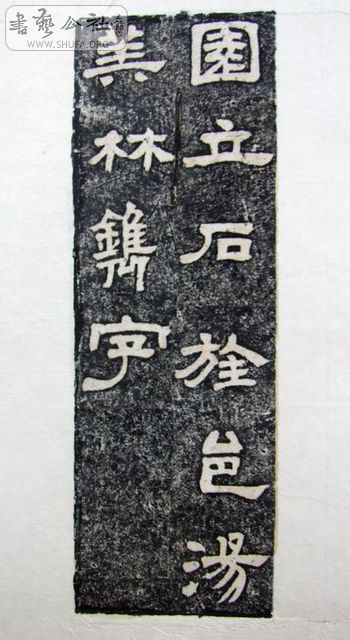 園立石旌邑湯
美林鐫字
書藝公社
WWW.SHUFA.ORG